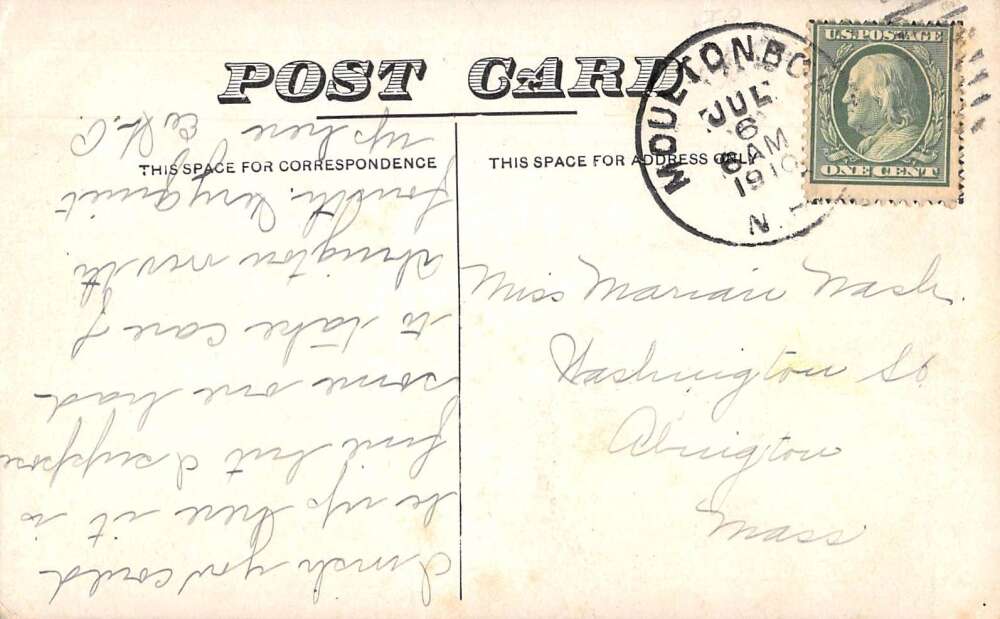 POST CARD
THIS SPACE FOR CORRESPONDENCE
THIS SPACE FOR ADDRESS ONLY
MOULTONBO
JUL
6
8 AM
1910
N.
U.S. POSTAGE
ONE CENT
Miss Marian Nash.
Washington St
Abington
Mass
I wish you could
be up here it is
fine but I suppose
some one had
to take care of
Abington over the
fourth. Very quiet
up here E.H.P.